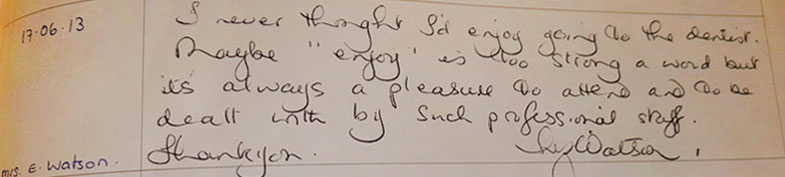 17.06.13
I never thought I'd enjoy going to the dentist.
Maybe "enjoy" is too strong a word but
it's always a pleasure to attend and to be
dealt with by such professional staff.
Thankyou.
Watson.
mrs. E. Watson.